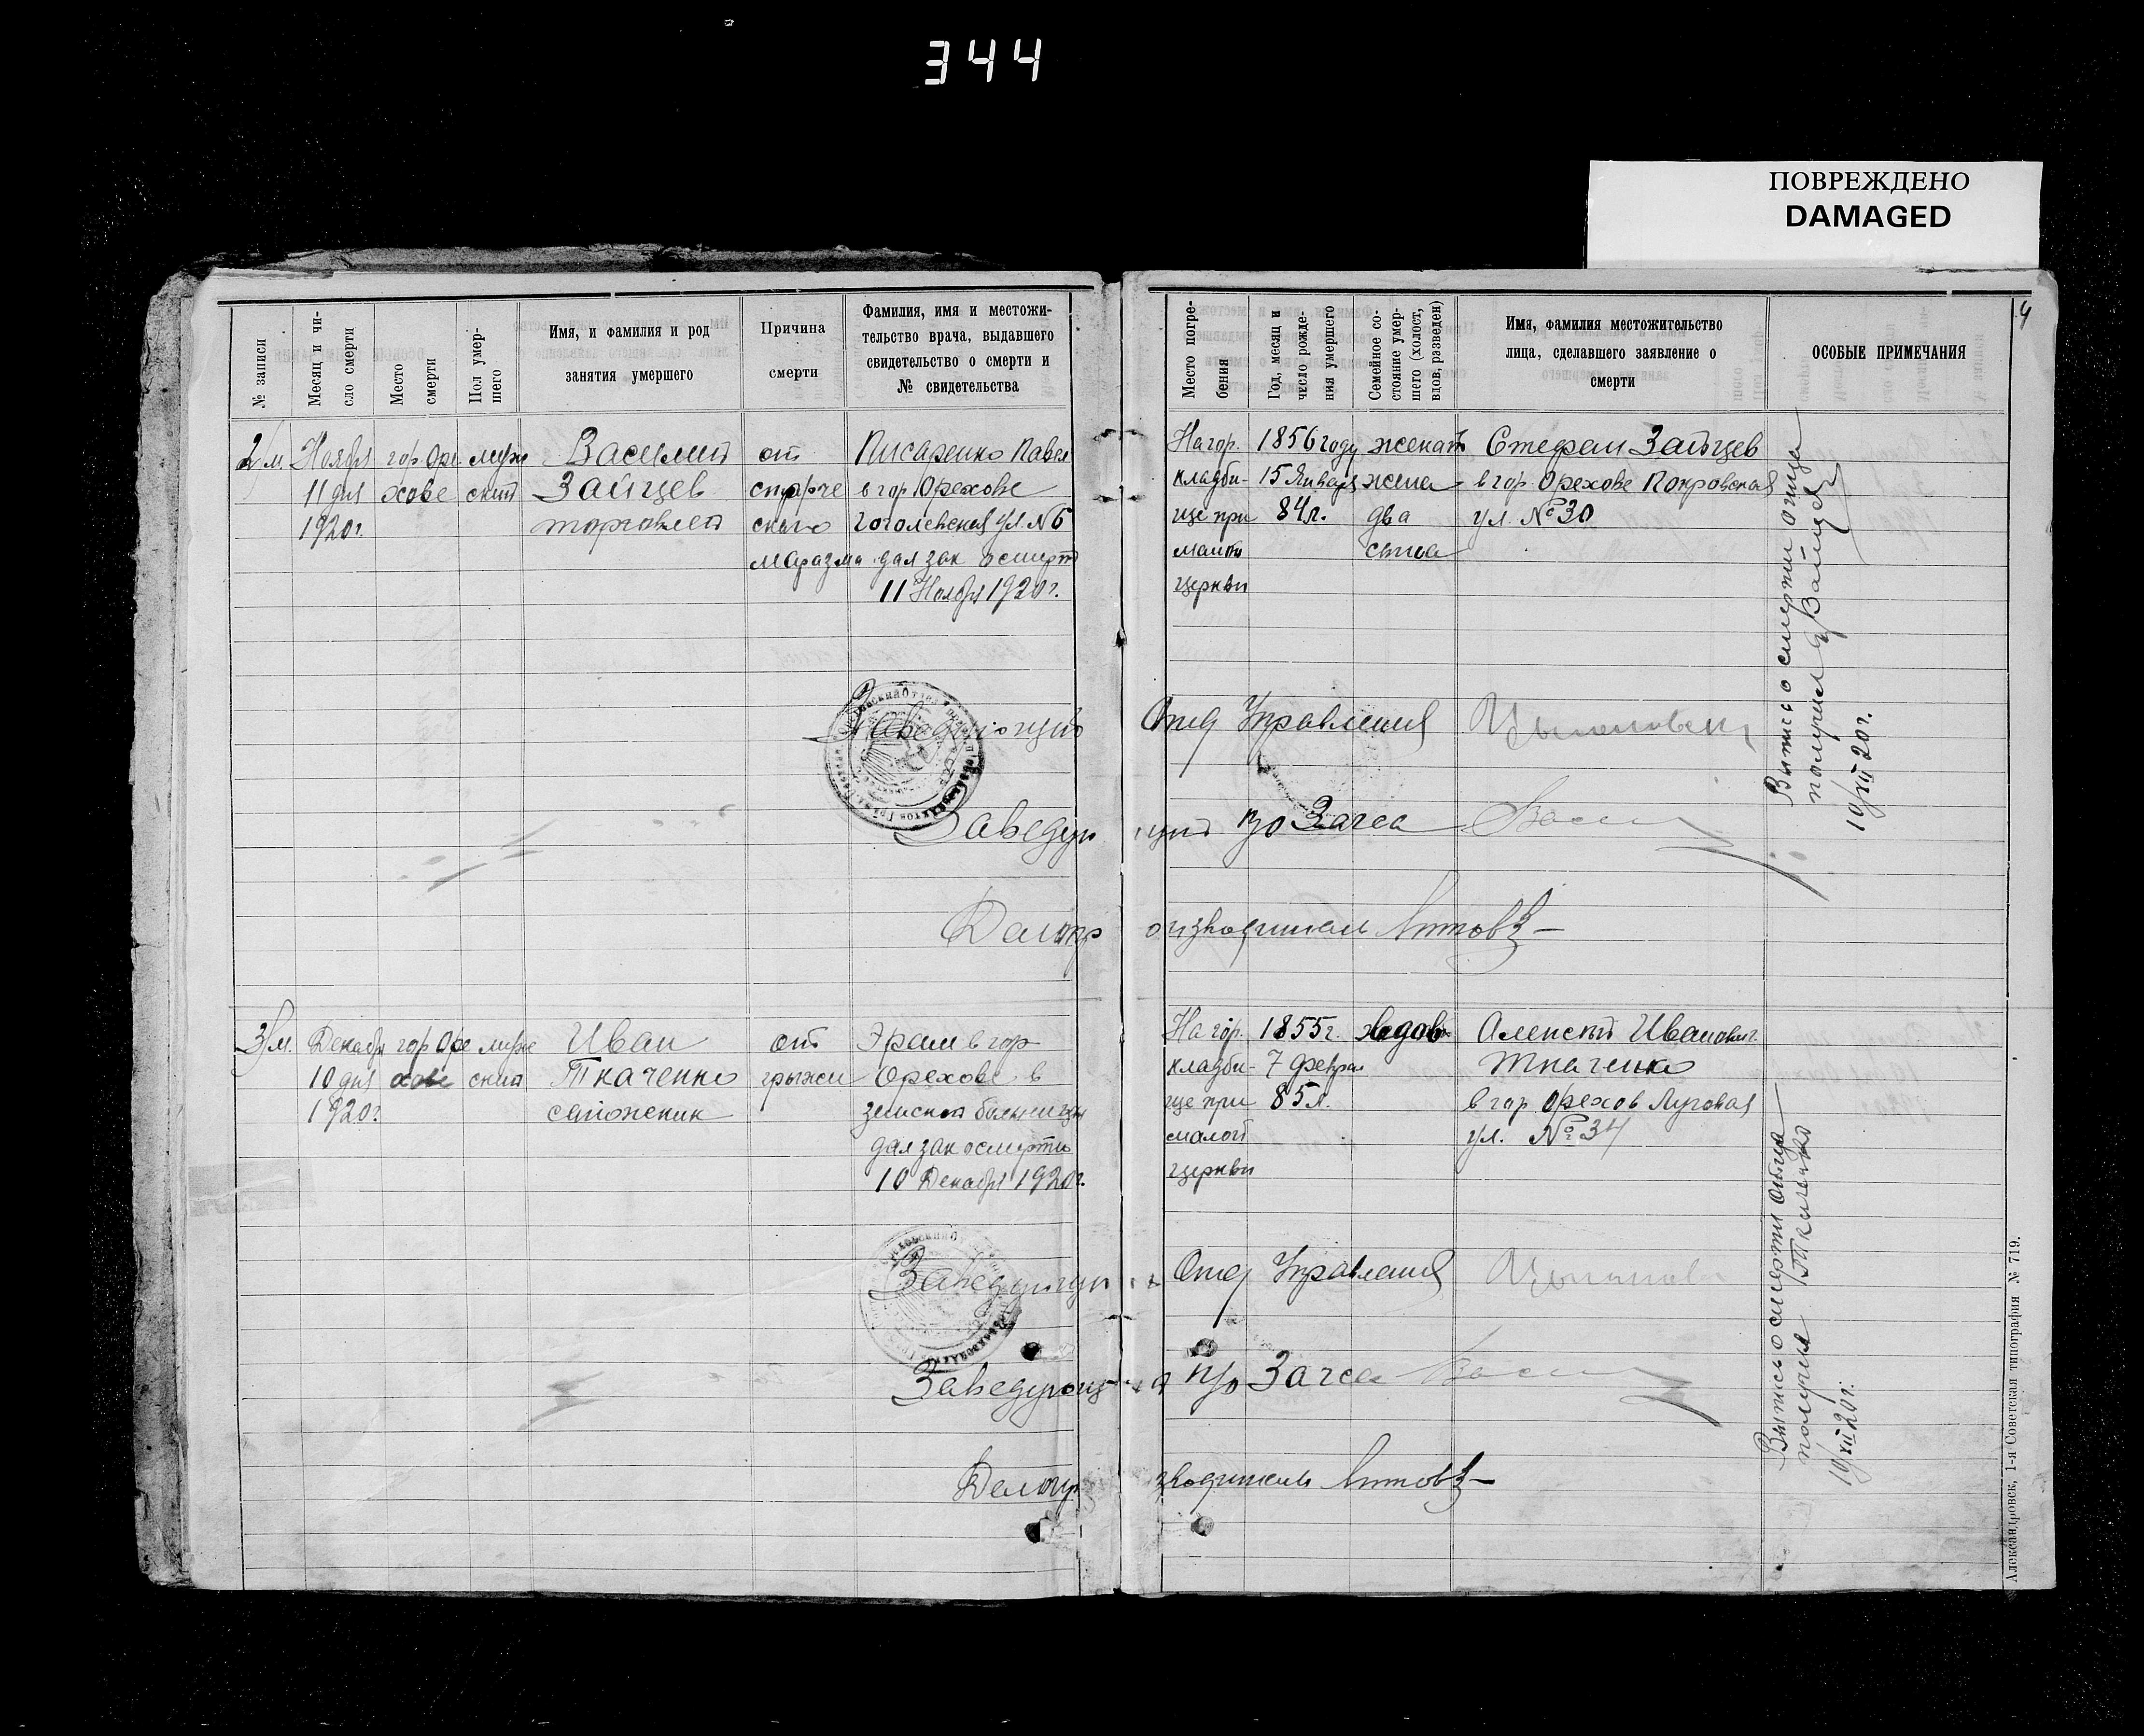 344
ПОВРЕЖДЕНО
DAMAGED
4
№ записи
Месяц и чи-
сло смерти
Место
смерти
Пол умер-
шего
Имя, и фамилия и род
занятия умершего
Причина
смерти
Фамилия, имя и местожи-
тельство врача, выдавшего
свидетельство о смерти и
№ свидетельства
Место погре-
бения
Год, месяц и
число рожде-
ния умершего
Семейное со-
стояние умер-
шего (холост,
вдов, разведен)
Имя, фамилия местожительство
лица, сделавшего заявление о
смерти
ОСОБЫЕ ПРИМЕЧАНИЯ
2/м.
Ноября
11 дня
1920г.
гор Оре
хове
муж
ской
Василий
Зайцев
торговлей
от
старче
скаго
маразма
Писаренко Павел
в гор Орехове
Гоголевская ул. №6
дал зак о смерти
11 Ноября 1920г.
На гор.
кладби-
ще при
малой
церкви
1856 году
15 Января
84л.
женат
жена
два
сына
Стефан Зайцев
в гор Орехове Покровская
ул. № 30
Выпись о смерти отца
получил Зайцев
10/XII 20г.
Заведующий Отд Управления
Заведующий п/о Загса
Делопроизводитель
3/м.
Декабря
10 дня
1920г
гор Оре
хове
муже
ский
Иван
Ткаченко
сапожник
от
грыжи
в гор
Орехове в
земской больнице
дал зак о смерти
10 Декабря 1920г.
На гор.
кладби-
ще при
малой
церкви
1855г.
7 феврал
85л.
вдов
Алексей Иванович
Ткаченко
в гор Орехов Луговая
ул. № 34
Выпись о смерти отца
получил Ткаченко
10/XII 20г.
Заведующий Отд Управления
Заведующий п/о Загса
Делопроизводитель
Александровск, 1-я Советская типография № 719.